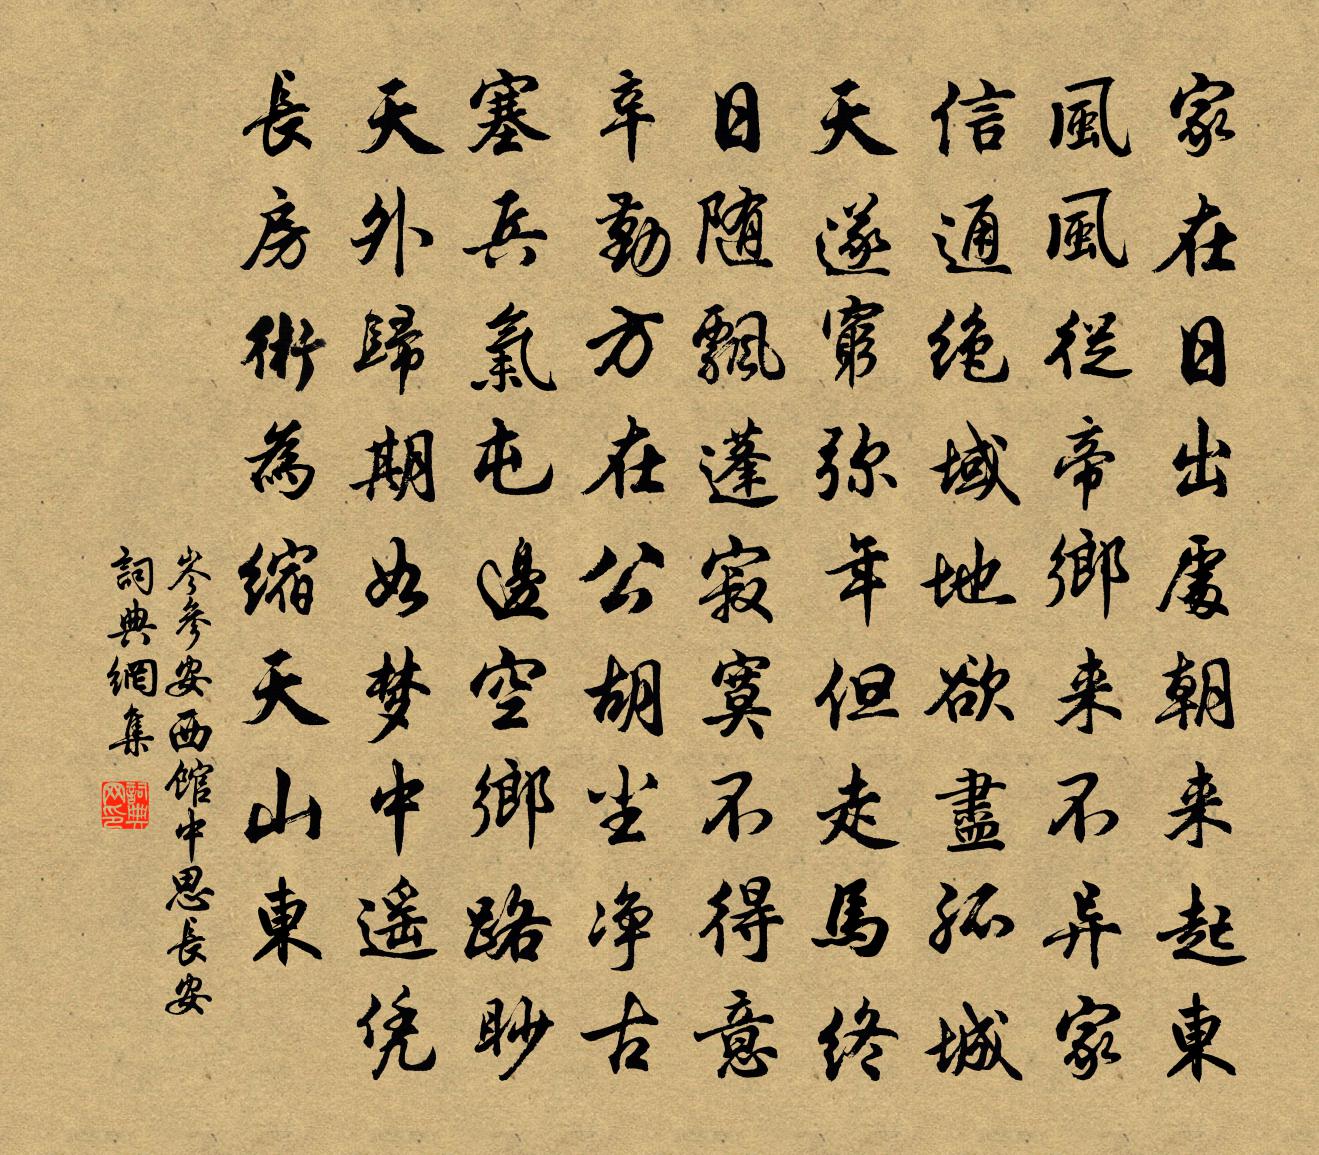 家在日出處朝来起東
風風從帝鄉来不异家
信通绝域地欲盡孤城
天遂窮弥年但走馬终
日随飘蓬寂寞不得意
辛勤方在公胡尘净古
塞兵氣屯邊空鄉路眇
天外歸期如梦中遥凭
長房術為缩天山東
岑參安西館中思長安
詞典網集
詞典网印